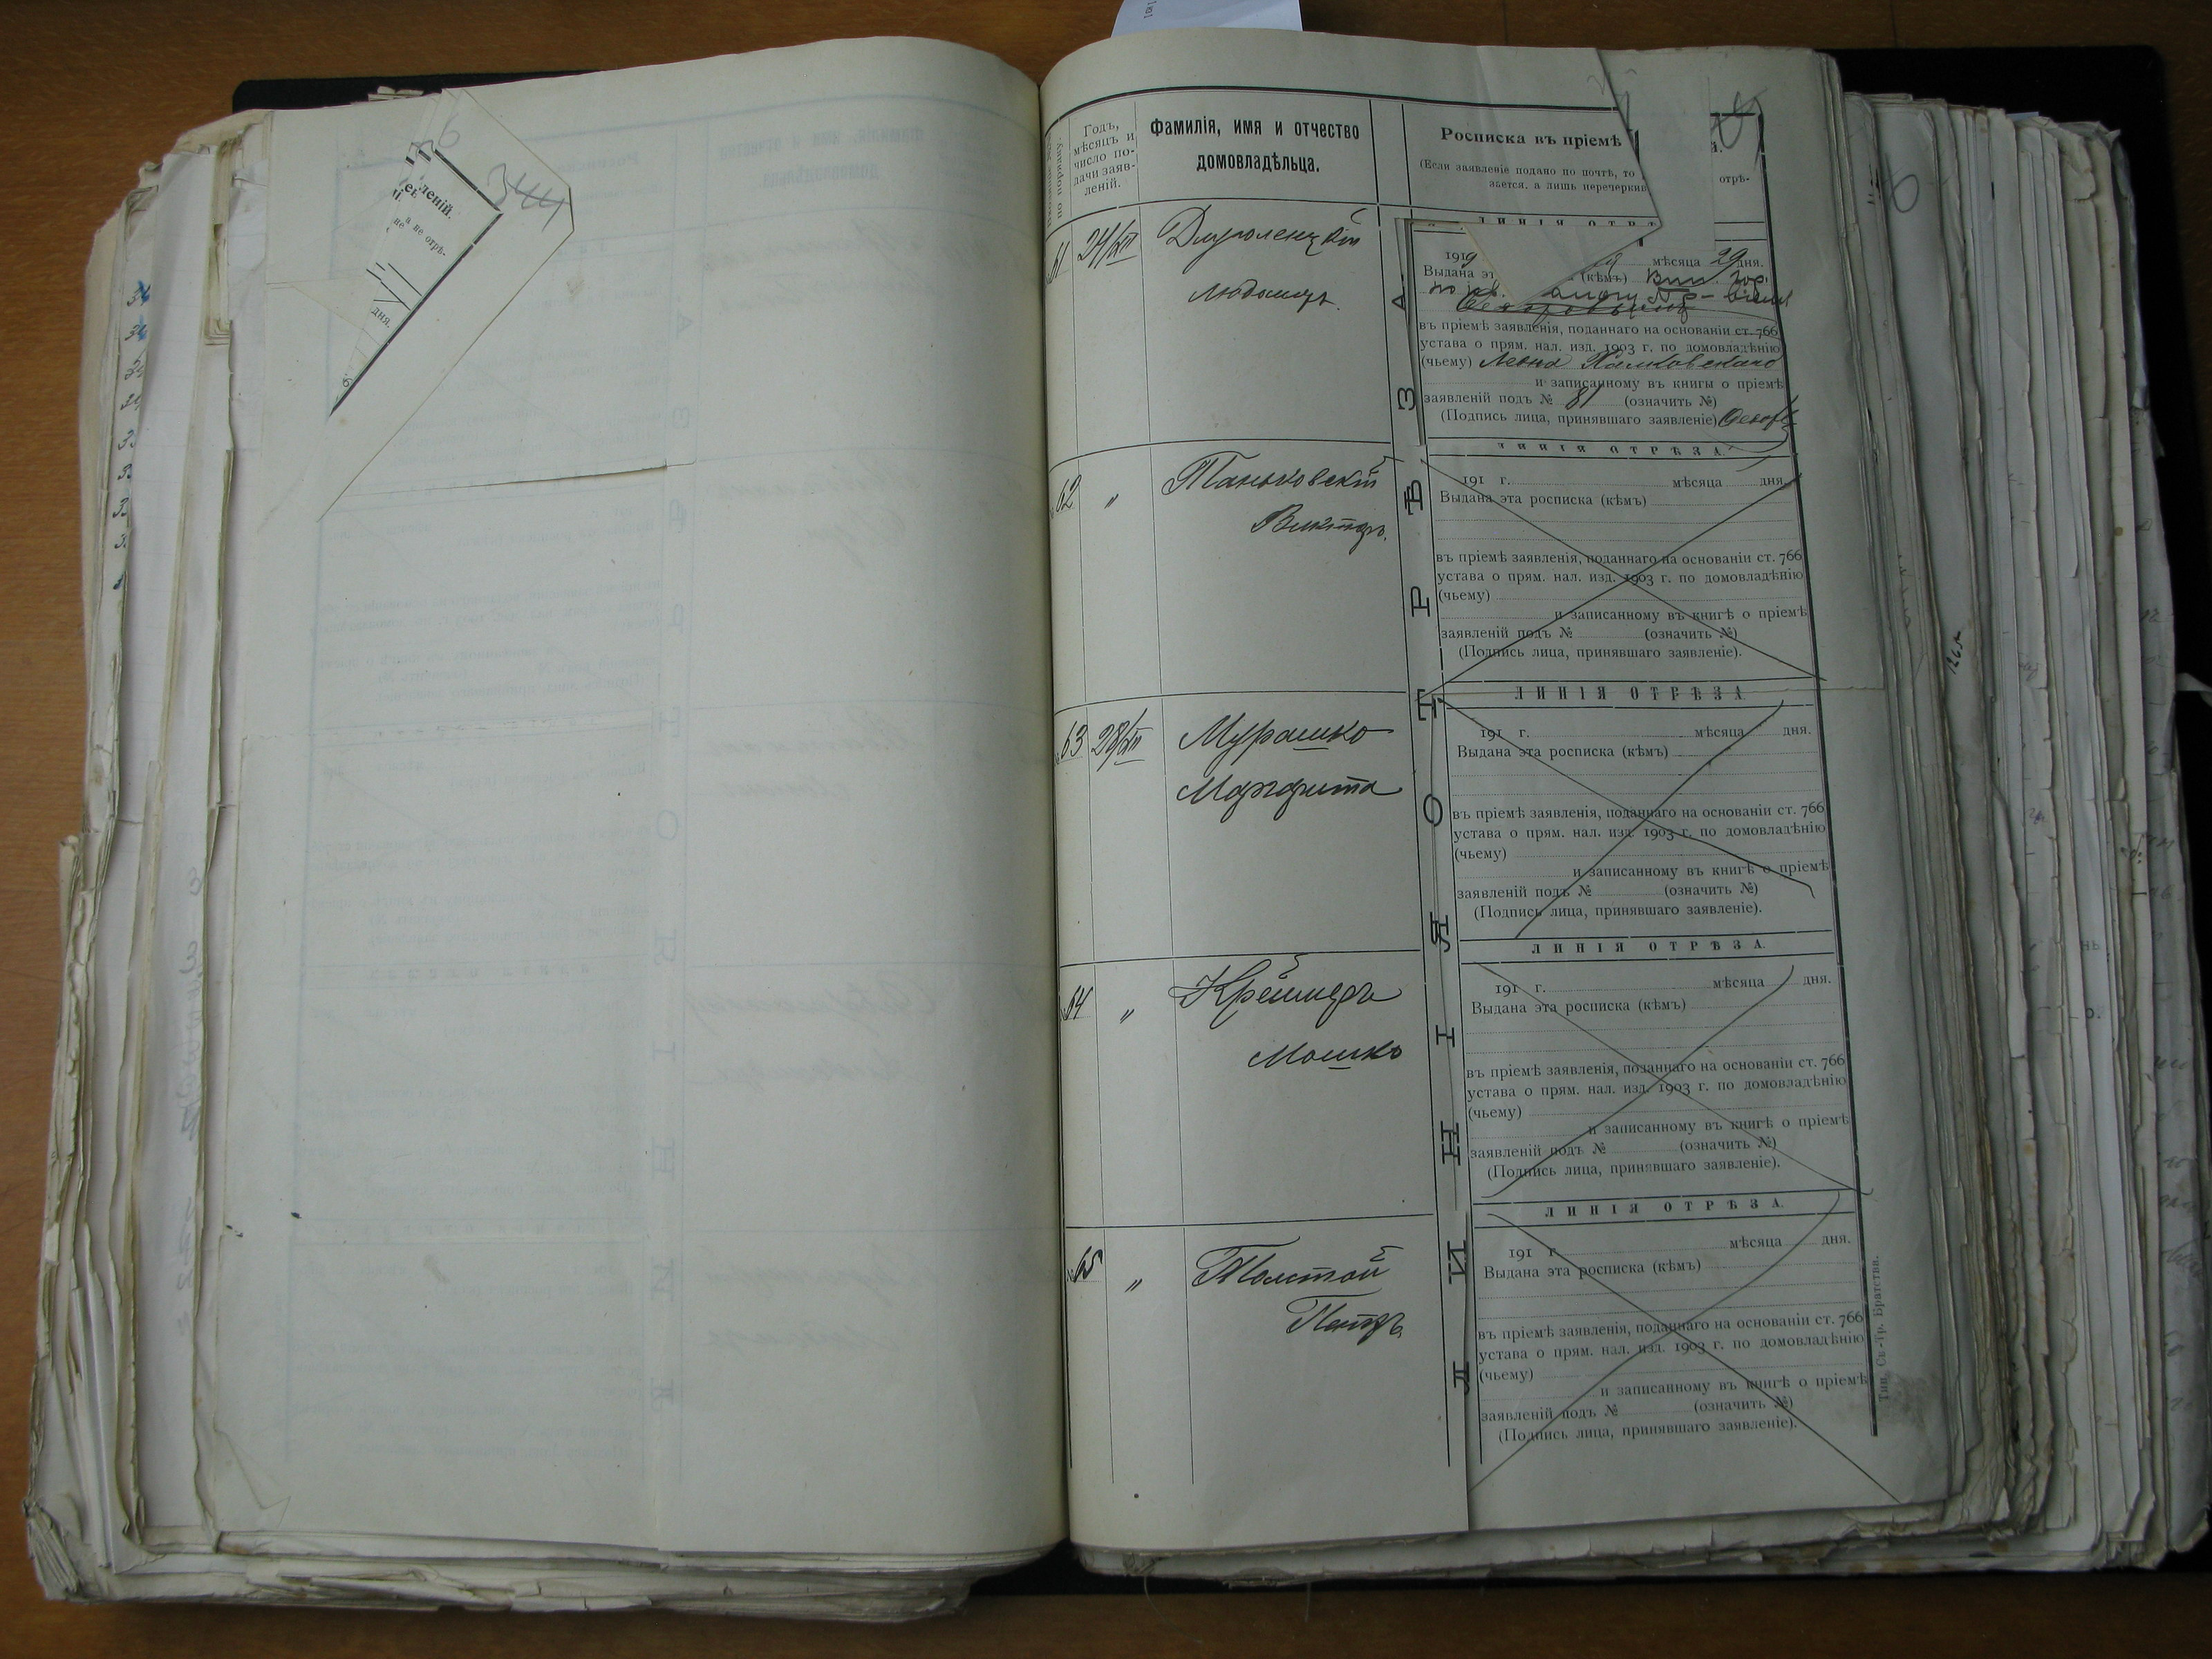 леній.
а не отрѣ-
дня.
Годъ,
мѣсяцъ и
число по-
дачи заяв-
леній.
Фамилія, имя и отчество
домовладѣльца.
Росписка въ пріемѣ
(Если заявленіе подано по почтѣ, то
зается, а лишь перечеркив
отрѣ-
по порядку.
61
24/VII
Людомиръ.
62
"
Таньковскій
Викторъ.
63
28/VII
Мурашко
Маргарита
64
"
Креймеръ
Мошко
65
"
Толстой
Петръ
ЛИНІЯ ОТРѢЗА
ЛИНІЯ ОТРѢ
1919 мѣсяца 29 дня.
Выдана эт (кѣмъ)
въ пріемѣ заявленія, поданнаго на основаніи ст. 766
устава о прям. нал. изд. 1903 г. по домовладѣнію
(чьему) Леона
и записанному въ книгы о пріемѣ
заявленій подъ № 81 (означить №)
(Подпись лица, принявшаго заявленіе)
ЛИНІЯ ОТРѢЗА
191 г. мѣсяца дня.
Выдана эта росписка (кѣмъ)
въ пріемѣ заявленія, поданнаго на основаніи ст. 766
устава о прям. нал. изд. 1903 г. по домовладѣнію
(чьему)
и записанному въ книгѣ о пріемѣ
заявленій подъ № (означить №)
(Подпись лица, принявшаго заявленіе).
ЛИНІЯ ОТРѢЗА.
191 г. мѣсяца дня.
Выдана эта росписка (кѣмъ)
въ пріемѣ заявленія, поданнаго на основаніи ст. 766
устава о прям. нал. изд. 1903 г. по домовладѣнію
(чьему)
и записанному въ книгѣ о пріемѣ
заявленій подъ № (означить №)
(Подпись лица, принявшаго заявленіе).
ЛИНІЯ ОТРѢЗА.
191 г. мѣсяца дня.
Выдана эта росписка (кѣмъ)
въ пріемѣ заявленія, поданнаго на основаніи ст. 766
устава о прям. нал. изд. 1903 г. по домовладѣнію
(чьему)
и записанному въ книгѣ о пріемѣ
заявленій подъ № (означить №)
(Подпись лица, принявшаго заявленіе).
ЛИНІЯ ОТРѢЗА.
191 г. мѣсяца дня.
Выдана эта росписка (кѣмъ)
въ пріемѣ заявленія, поданнаго на основаніи ст. 766
устава о прям. нал. изд. 1903 г. по домовладѣнію
(чьему)
и записанному въ книгѣ о пріемѣ
заявленій подъ № (означить №)
(Подпись лица, принявшаго заявленіе).
Тип. Св.-Тр. Братства.